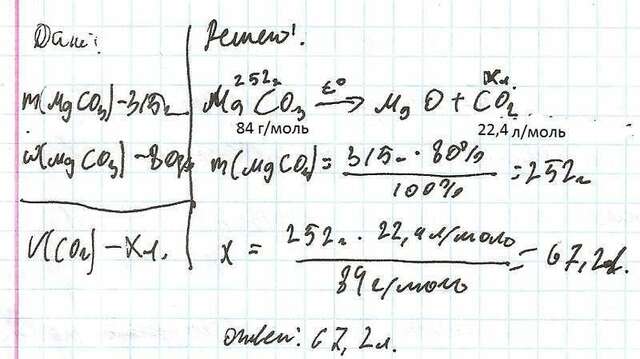 Дано:
m(MgCO3) - 315г
w(MgCO3) - 80%
V(CO2) - Xл.
Решение:
252г Xл.
MgCO3 t° → MgO + CO2
84 г/моль 22,4 л/моль
m(MgCO3) = 315г · 80% / 100% = 252г
X = 252г · 22,4 л/моль / 84 г/моль = 67,2л.
ответ: 67,2л.